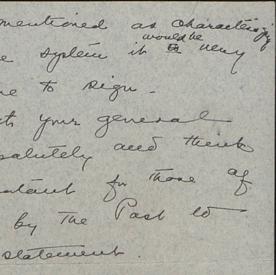 mentioned as characterizing
would be
e system it is very
me to sign.
th your general
solutely and think
stant for those of
by the Past to
statement.